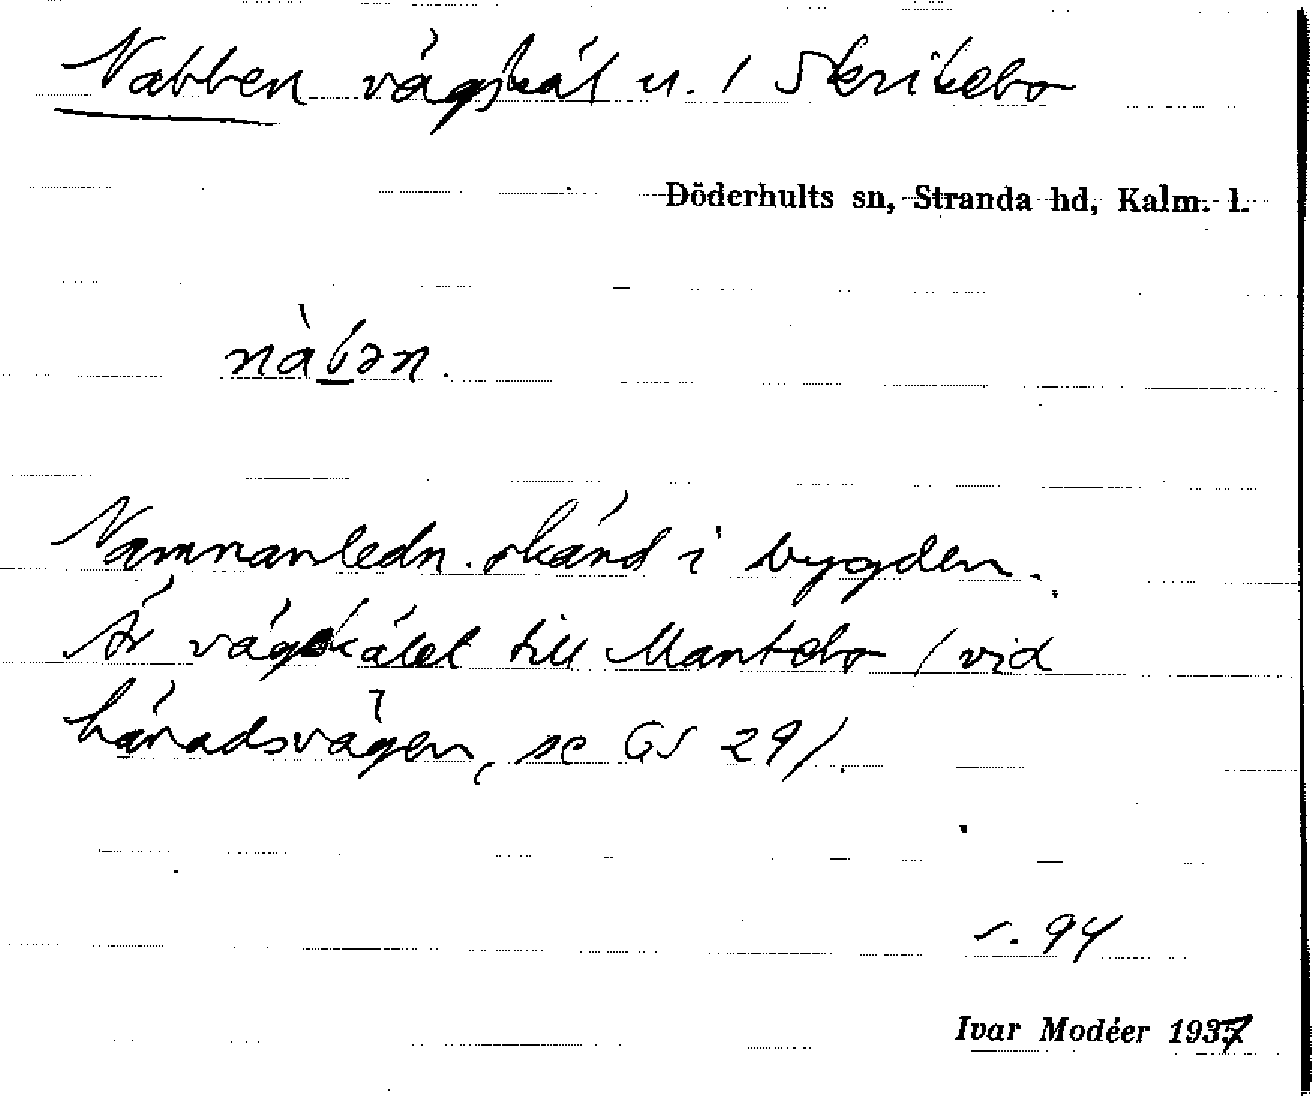 Nabben vägskäl u. / Skrikebo
Döderhults sn, Stranda hd, Kalm. l.
nàbən.
Namnanledn. okänd i bygden.
Är vägskälet till Mantebo / vid
häradsvägen, se GS 29/.
s. 94
Ivar Modéer 1937